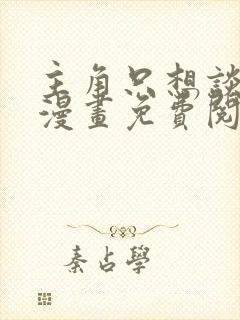 主角只想談
漫畫免費閱
秦占學